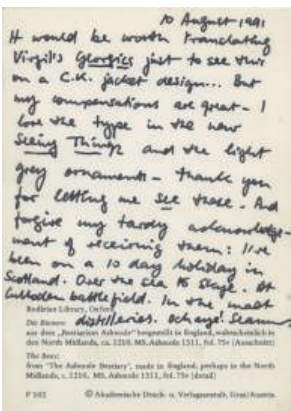 10 August 1991
It would be worth translating
Virgil's Georgics just to see this
on a C.K. jacket design... But
my compensations are great - I
love the type in the new
Seeing Things and the light
grey ornaments - thank you
for letting me see these. And
forgive my tardy acknowledge-
ment of receiving them: I've
been on a 10 day holiday in
Scotland. Over the sea to Skye. At
Culloden battlefield. In the malt
distilleries. Seamus
Bodleian Library, Oxford
Die Bienen:
aus dem „Bestiarium Ashmole“ hergestellt in England, wahrscheinlich in
den North Midlands, ca. 1210. MS. Ashmole 1511, fol. 75v (Ausschnitt)
The Bees:
from 'The Ashmole Bestiary', made in England, perhaps in the North
Midlands, c. 1210. MS. Ashmole 1511, fol. 75v (detail)
P 102 © Akademische Druck- u. Verlagsanstalt, Graz/Austria